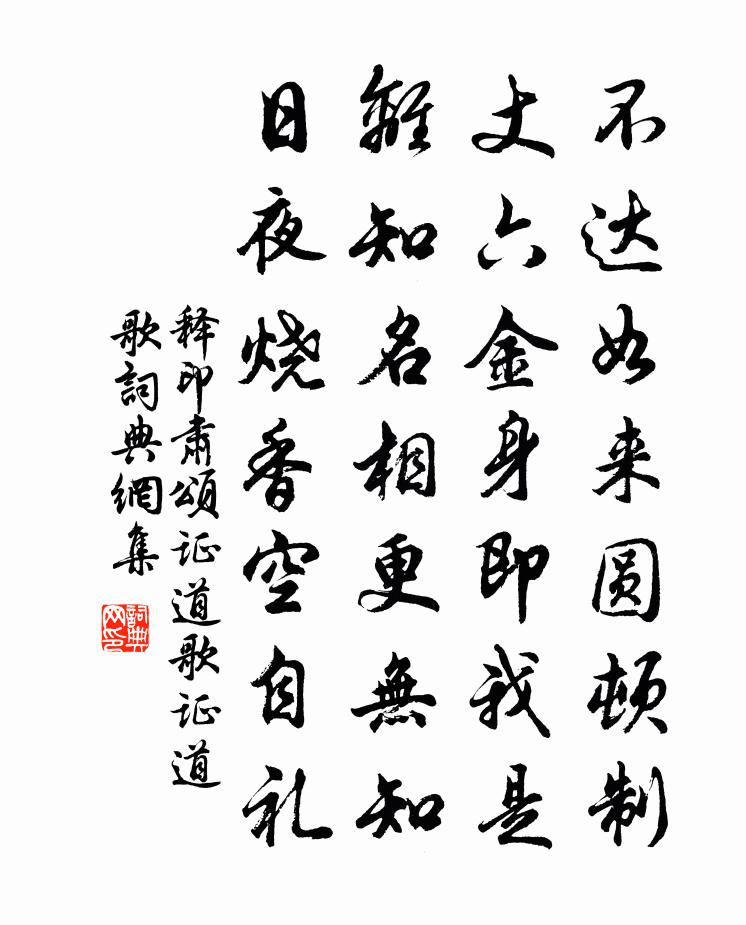 不达如来圆顿制
丈六金身即我是
虽知名相更無知
日夜烧香空自礼
释印肃頌证道歌证道
歌詞典網集
詞典网印